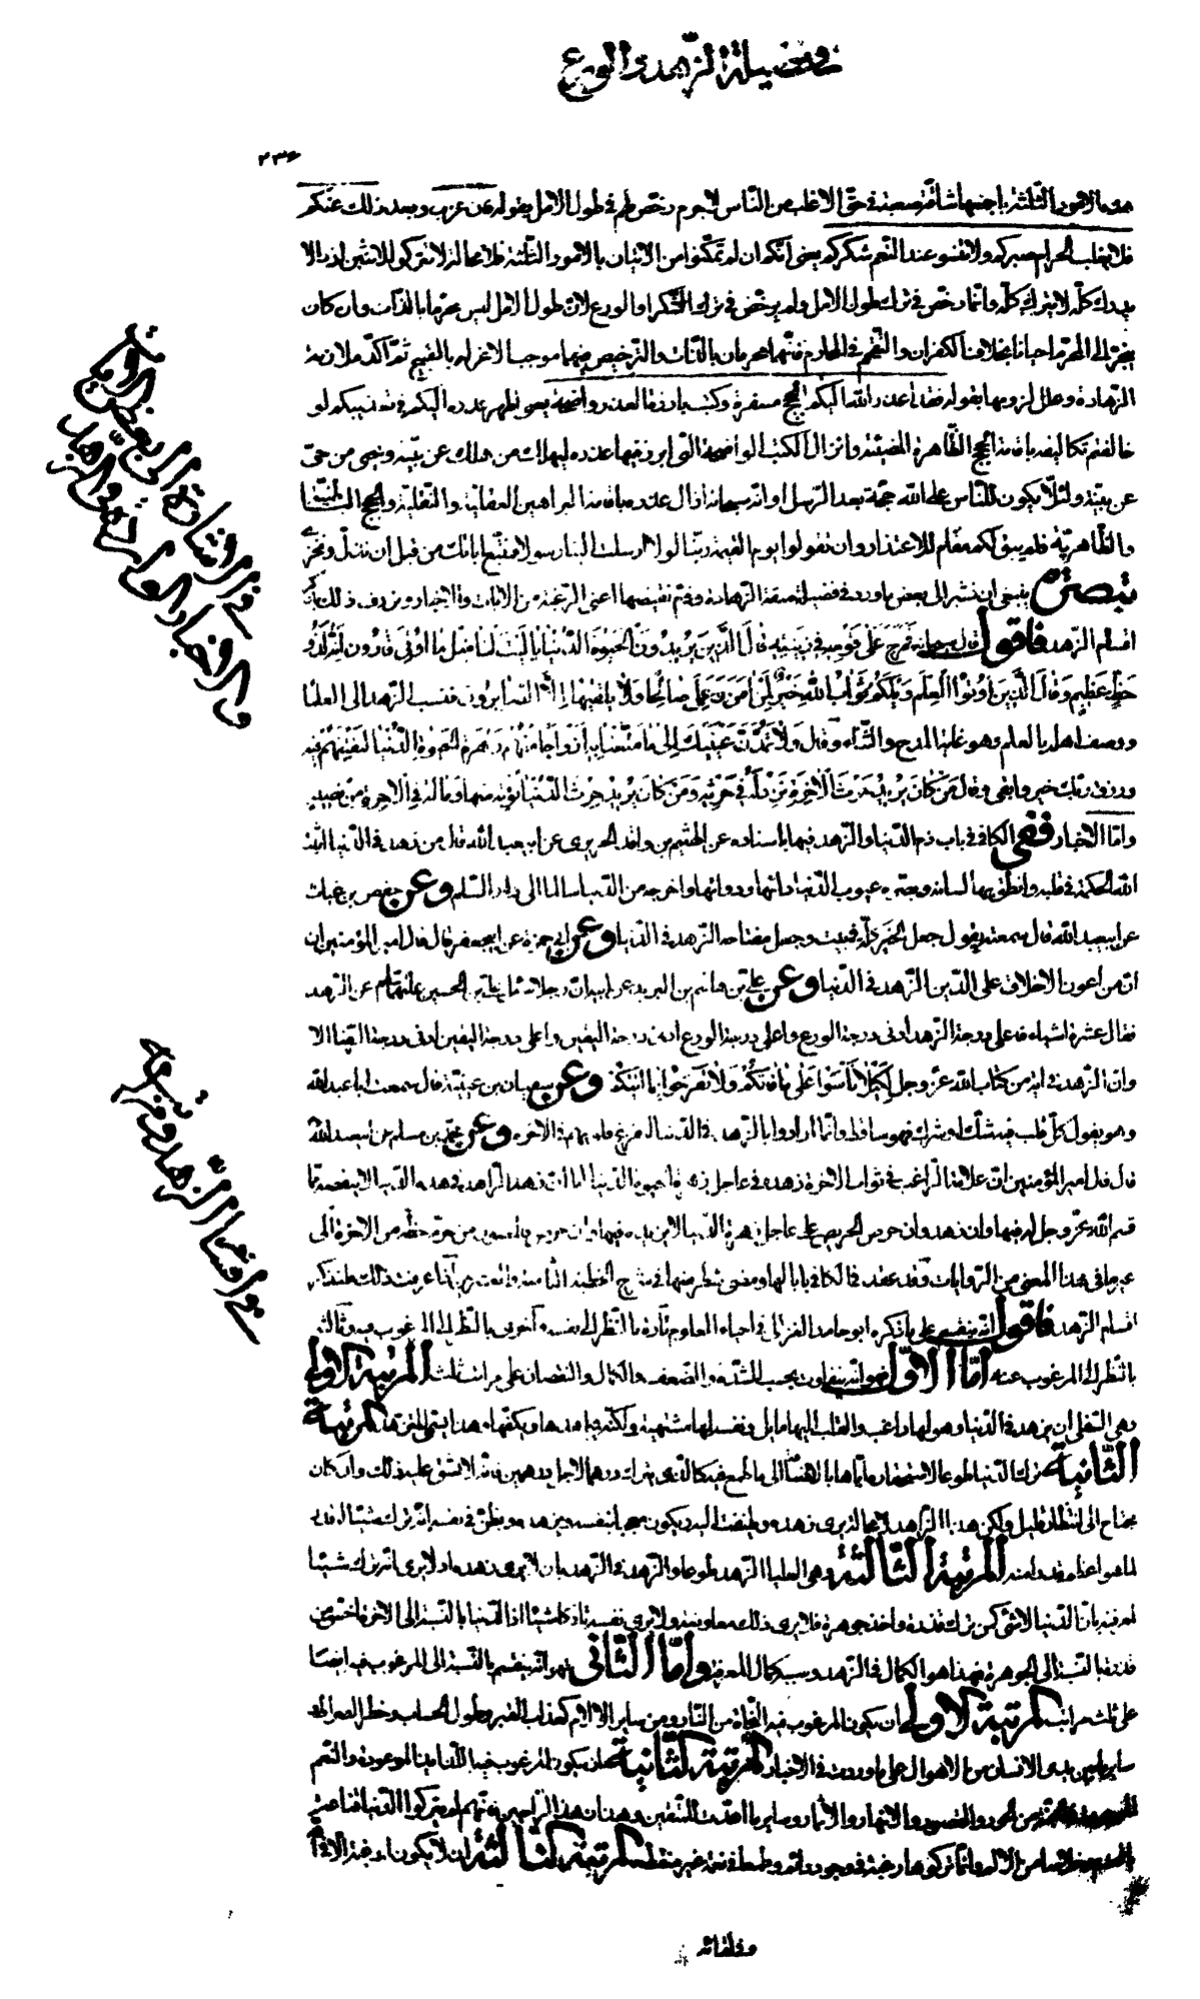 في فضيلة الزهد والورع
٢٣٦
الامور الثلثة باجمعها شاقة صعبة في حق الاغلب من الناس لاجرم رخص لهم في طول الامل بقوله فان عزب وبعد ذلك عنكم
فلا يغلب الحرام صبركم ولا تنسوا عند النعم شكركم يعني انكم ان لم تتمكنوا من الاتيان بالامور الثلثة فلا محالة لا تتركوا الاثنين اذ ما لا
يدرك كله لا يترك كله وانما رخص في ترك طول الامل ولم يرخص في ترك الشكر او الورع لان طول الامل ليس محرما بالذات وان كان
ينجر الى المحرم احيانا بخلاف الكفران والتقحم في المحارم فانهما محرمان بالذات والترخيص فيهما موجب الاغراء بالقبيح ثم اكد ملازمة
الزهادة وعلل لزومها بقوله فقد اعذر الله اليكم بحجج مسفرة وكتب بارزة العذر واضحة يعني اظهر عذره اليكم في تعذيبكم لو
خالفتم تكاليفه باقامة الحجج الظاهرة المضيئة وانزال الكتب الواضحة التي ابرز فيها عذره ليهلك من هلك عن بينة ويحيى من حي
عن بينة ولئلا يكون للناس على الله حجة بعد الرسل او انه سبحانه ازال عذره باقامة البراهين العقلية والنقلية والحجج الباطنية
والظاهرية فلم يبق لكم مقام للاعتذار وان تقولوا يوم القيمة ربنا لولا ارسلت الينا رسولا فنتبع اياتك من قبل ان نذل ونخزى
تبصرة ينبغي ان نشير الى بعض ما ورد في فضيلة صفة الزهادة وفي ذم نقيضها اعني الرغبة من الايات والاخبار ونردف ذلك بذكر
اقسام الزهد فاقول قال سبحانه فخرج على قومه في زينته قال الذين يريدون الحيوة الدنيا يا ليت لنا مثل ما اوتي قارون انه لذو
حظ عظيم وقال الذين اوتوا العلم ويلكم ثواب الله خير لمن امن وعمل صالحا ولا يلقيها الا الصابرون فنسب الزهد الى العلماء
ووصف اهله بالعلم وهو غاية المدح والثناء وقال ولا تمدن عينيك الى ما متعنا به ازواجا منهم زهرة الحيوة الدنيا لنفتنهم فيه
ورزق ربك خير وابقى وقال من كان يريد حرث الاخرة نزد له في حرثه ومن كان يريد حرث الدنيا نؤته منها وما له في الاخرة من نصيب
واما الاخبار ففي الكافي في باب ذم الدنيا والزهد فيها باسناده عن الهيثم بن واقد الحريري عن ابي عبد الله قال من زهد في الدنيا اثبت
الله الحكمة في قلبه وانطق بها لسانه وبصره عيوب الدنيا دائها ودوائها واخرجه من الدنيا سالما الى دار السلام وعن حفص بن غياث
عن ابي عبد الله قال سمعته يقول جعل الخير كله في بيت وجعل مفتاحه الزهد في الدنيا وعن ابي حمزة عن ابي جعفر قال قال امير المؤمنين ان
ان من اعون الاخلاق على الدين الزهد في الدنيا وعن علي بن هاشم بن البريد عن ابيه ان رجلا سأل علي بن الحسين عليهما السلام عن الزهد
فقال عشرة اشياء فاعلى درجة الزهد ادنى درجة الورع واعلى درجة الورع ادنى درجة اليقين واعلى درجة اليقين ادنى درجة الرضا الا
وان الزهد في اية من كتاب الله عز وجل لكيلا تأسوا على ما فاتكم ولا تفرحوا بما اتيكم وعن سفيان بن عيينة قال سمعت ابا عبد الله
وهو يقول كل قلب فيه شك او شرك فهو ساقط وانما ارادوا بالزهد في الدنيا لتفرغ قلوبهم للاخرة وعن محمد بن مسلم عن ابي عبد الله
قال قال امير المؤمنين ان علامة الراغب في ثواب الاخرة زهده في عاجل زهرة الحيوة الدنيا اما ان زهد الزاهد في هذه الدنيا لا ينقصه مما
قسم الله عز وجل له فيها وان زهد وان حرص الحريص على عاجل زهرة الدنيا لا يزيده فيها وان حرص فالمغبون من حرم حظه من الاخرة الى
غير ما في هذا المعنى من الروايات وقد عقد في الكافي بابا لها ومضى شطر منها في شرح الخطبة الثامنة واذا عرفت ذلك فلنذكر
اقسام الزهد فاقول انه ينقسم على ما ذكره ابو حامد الغزالي في احياء العلوم تارة بالنظر الى نفسه واخرى بالنظر الى المرغوب فيه وثالثة
بالنظر الى المرغوب عنه اما الاول فهو انه يتفاوت بحسب الشدة والضعف والكمال والنقصان على مراتب ثلث المرتبة الاولى
وهي السفلى ان يزهد في الدنيا وهو لها راغب والقلب اليها مايل ونفسه لها مشتهية ولكنه يجاهدها ويكفها وهذا يسمى المتزهد المرتبة
الثانية ترك الدنيا طوعا لاستحقاره اياها بالاضافة الى ما طمع فيه كالذي يترك درهما لاجل درهمين فانه لا يشق عليه ذلك وان كان
يحتاج الى انتظار قليل ولكن هذا الزاهد لا محالة يرى زهده ويلتفت اليه ويكون معجبا بنفسه وبزهده ويظن في نفسه انه ترك شيئا له قدر
لما هو اعظم قدرا منه المرتبة الثالثة وهي العليا الزهد طوعا والزهد في الزهد بان لا يرى زهده اذ لا يرى انه ترك شيئا
لمعرفته بان الدنيا لا شيء كمن ترك قذرة واخذ جوهرة فلا يرى ذلك معاوضة ولا يرى نفسه تاركا شيئا اذ الدنيا بالنسبة الى الاخرة اخس من
قذرة بالنسبة الى الجوهرة فهذا هو الكمال في الزهد وسببه كمال المعرفة واما الثاني فهو انه ينقسم بالنسبة الى المرغوب فيه ايضا
على ثلث مراتب المرتبة الاولى ان يكون المرغوب فيه النجاة من النار ومن ساير الالام كعذاب القبر وطول الحساب وخطر الصراط و
ساير ما بين يدي الانسان من الاهوال على ما وردت في الاخبار المرتبة الثانية ان يكون المرغوب فيه اللذايذ الموعودة والنعم
من الحور والقصور والانهار والاثمار وساير ما اعدت للمتقين وهذان الزاهدين فانهم لم يتركوا الدنيا قناعة
من الالم وانما تركوها رغبة في وجود دائم وطمعا في نعمة غير منقطعة المرتبة الثالثة ان لا يكون له رغبة الا في الله
وفي لقائه
في الاشارة الى بعض الايات
والاخبار الواردة في الزهد
في اقسام الزهد ومراتبه